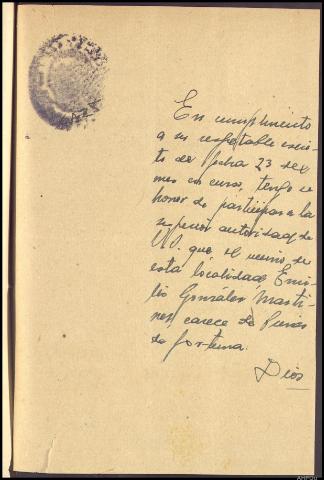 En cumplimiento
a su respetable escri-
to de fecha 23 del
mes en curso, tengo el
honor de participar a la
superior autoridad de
V.O. que el vecino de
esta localidad Emi-
lio González Martí-
nez, carece de bienes
de fortuna.
Dios